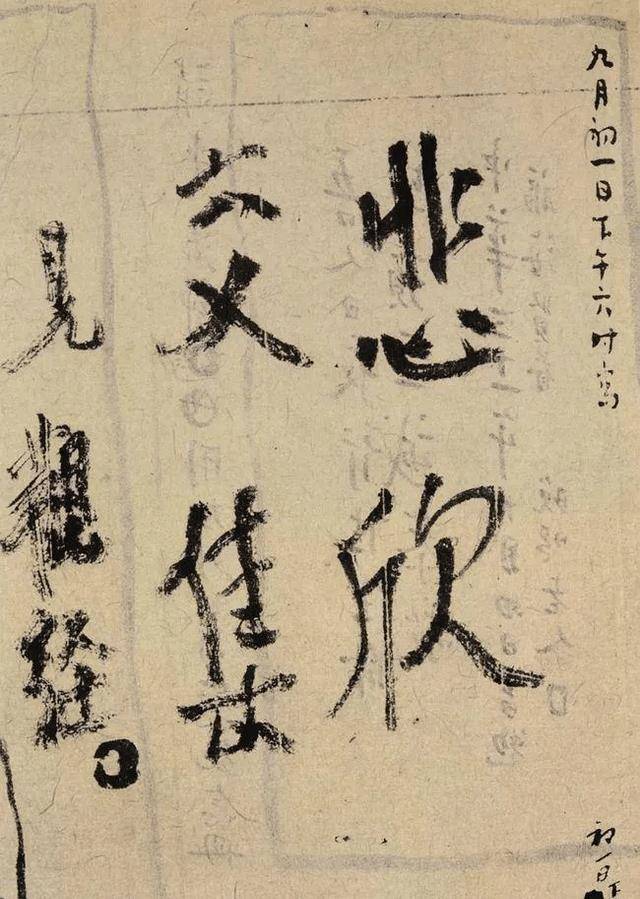 九月初一日下午六时寫
初一日下
悲欣
交集
見觀經